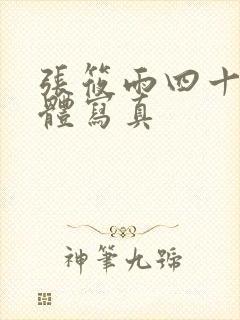 張筱雨四十
體寫真
神筆九號